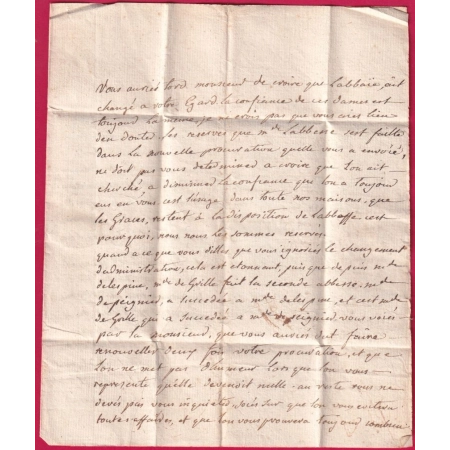 Vous auriés tord monsieur de croire que labbaïe ait
changé a votre Egard, la confiance de ces dames est
toujour la meme, je ne crois pas que vous aies lieu
den douter. les reserves que mde labbesse sest faitte
dans la nouvelle procuration quelle vous a envoié,
ne doit pas vous determiner a croire que lon ait
cherché, a diminuer la confiance que lon a toujour
eus en vous cest lusage dans toute nos maisons, que
les Graces, restent a la disposition de labbesse cest
pourquoi, nous nous les sommes reservés
quand a ce que vous dittes que vous ignoriés le changement
dadministration, cela est etonnant, puis que depuis mde
delespine, mde de Grille fait la seconde abbesse, mde
de peignier, a succedée a mde delespine, et cest mde
de Grille qui a succedée a mde de peignier, vous voiés
par la monsieur, que vous auriés dut faire
renouveller deux fois votre procuration, et que
lon ne met pas dhumeur lors que lon vous
represente quelle devenoit nulle. au reste vous ne
devés pas vous inquieter, soiés sur que lon vous
toutes affaires, et que lon vous prouvera toujour combien